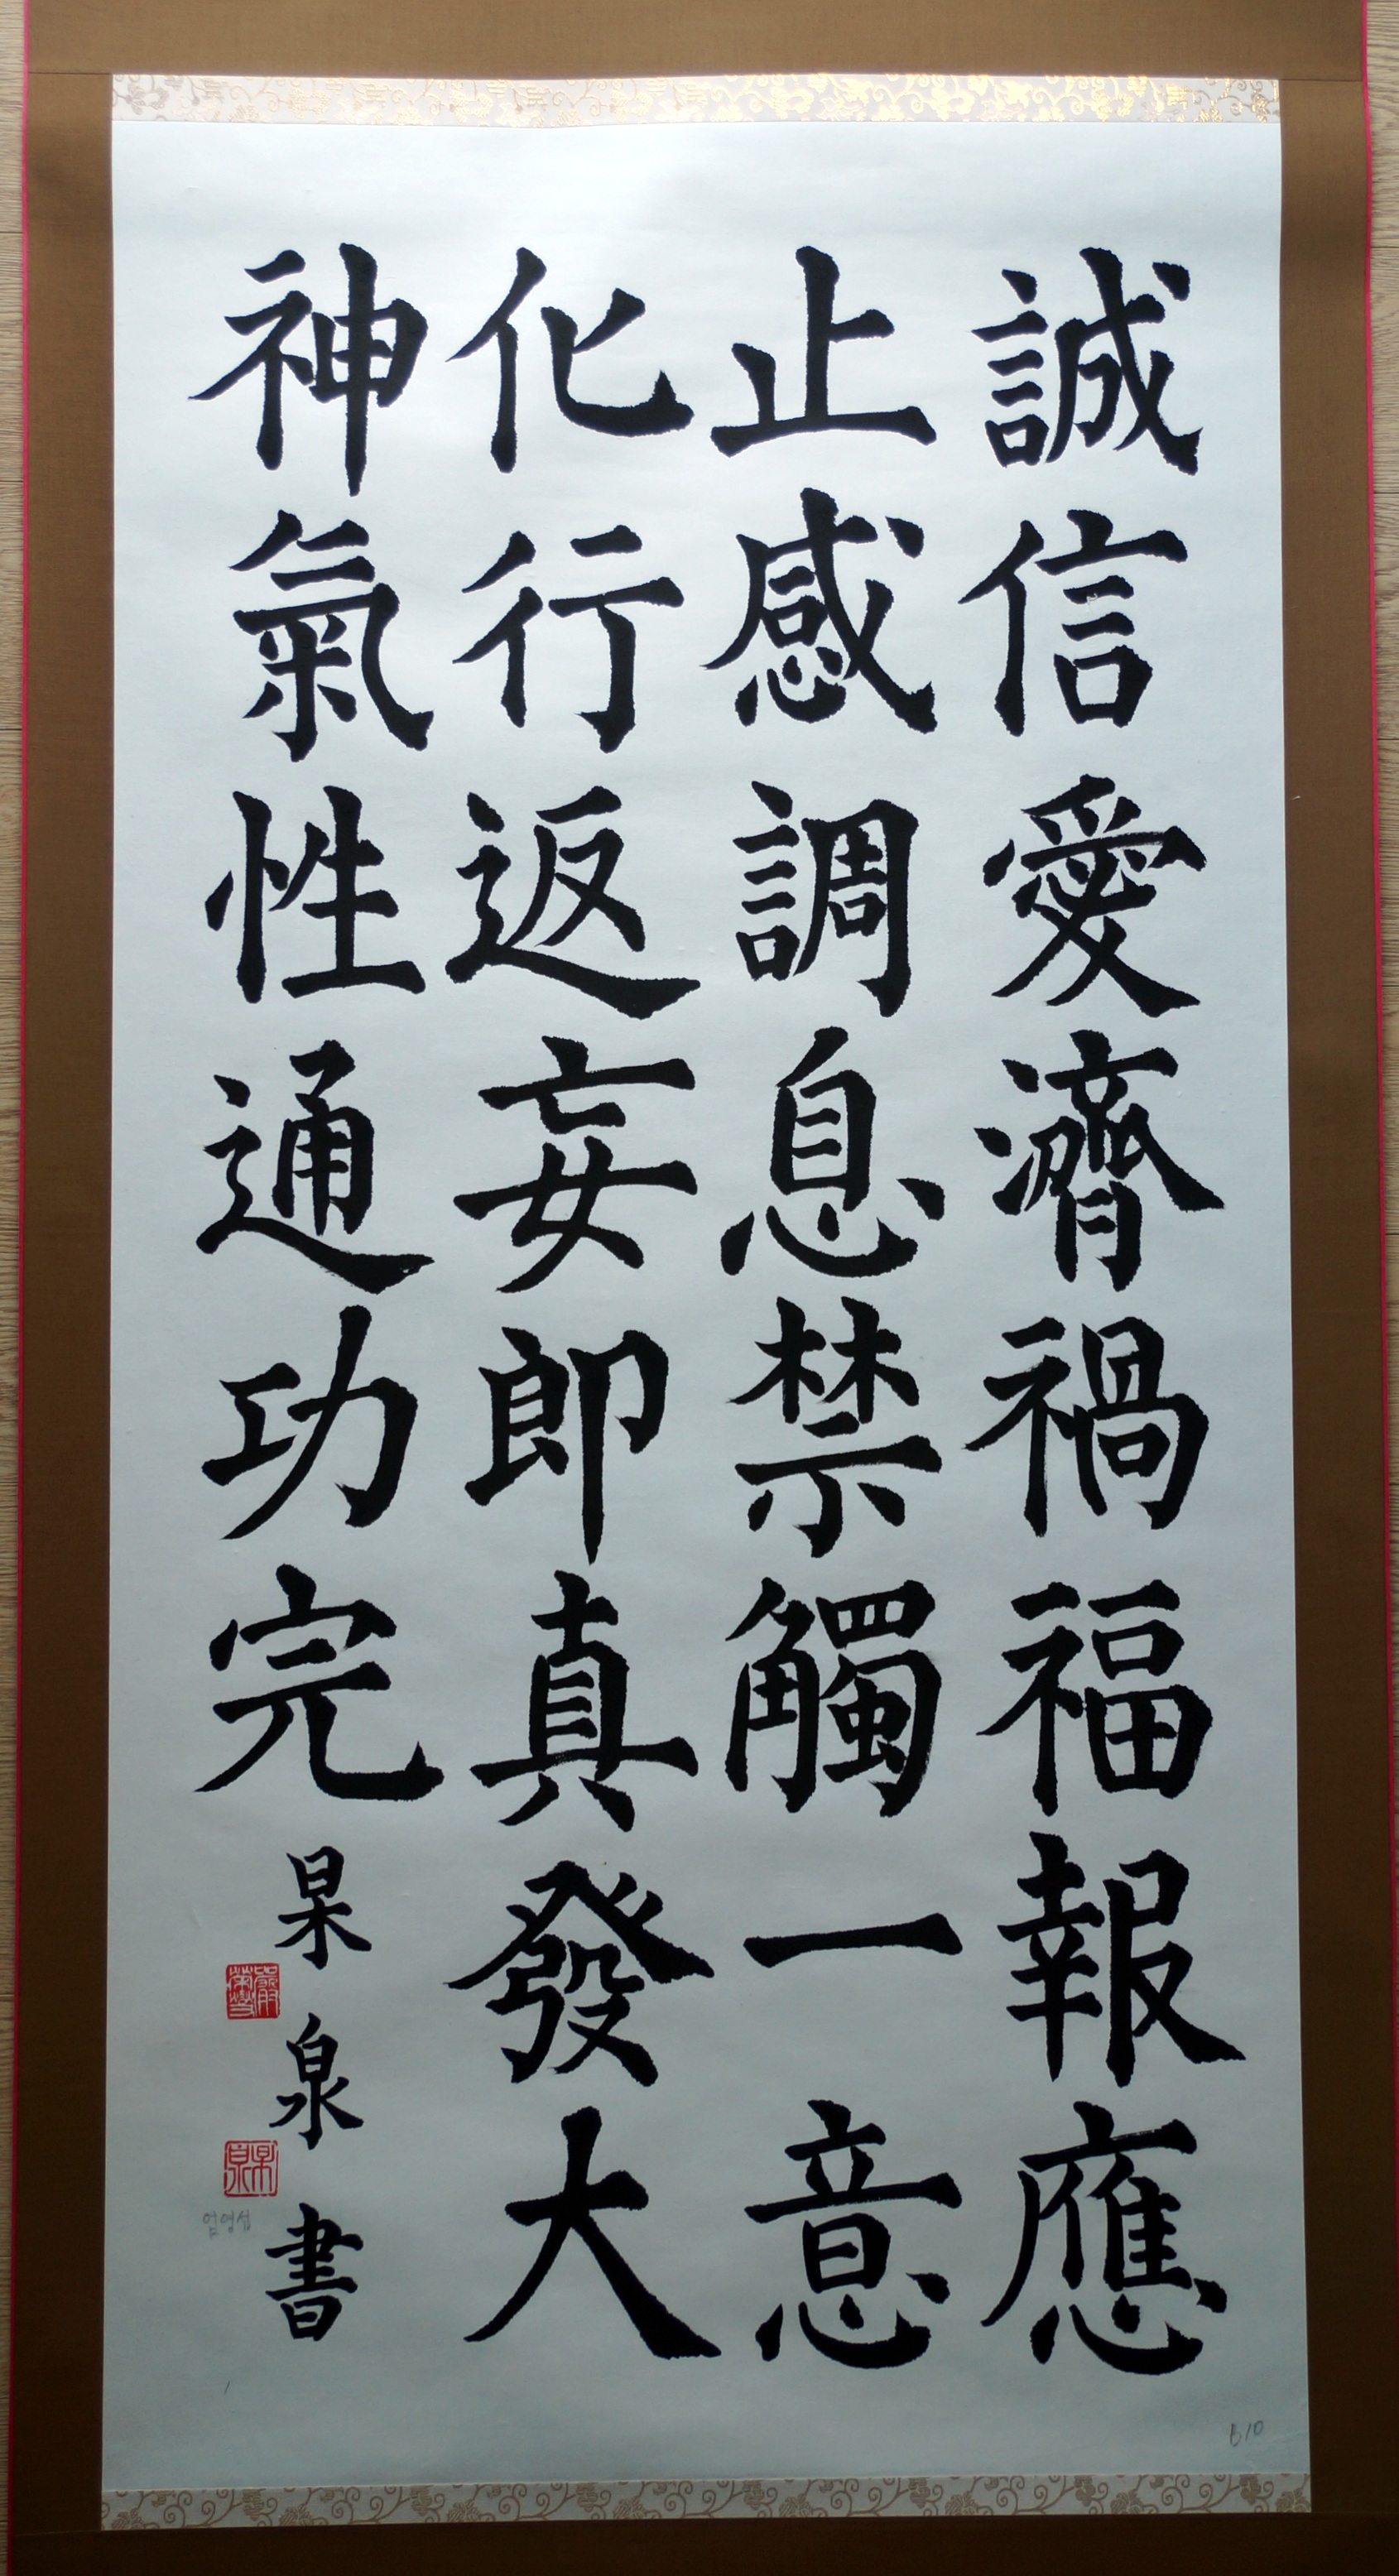 誠信愛濟禍福報應
止感調息禁觸一意
化行返妄即真發大
神氣性通功完
杲泉書
엄영섭
610